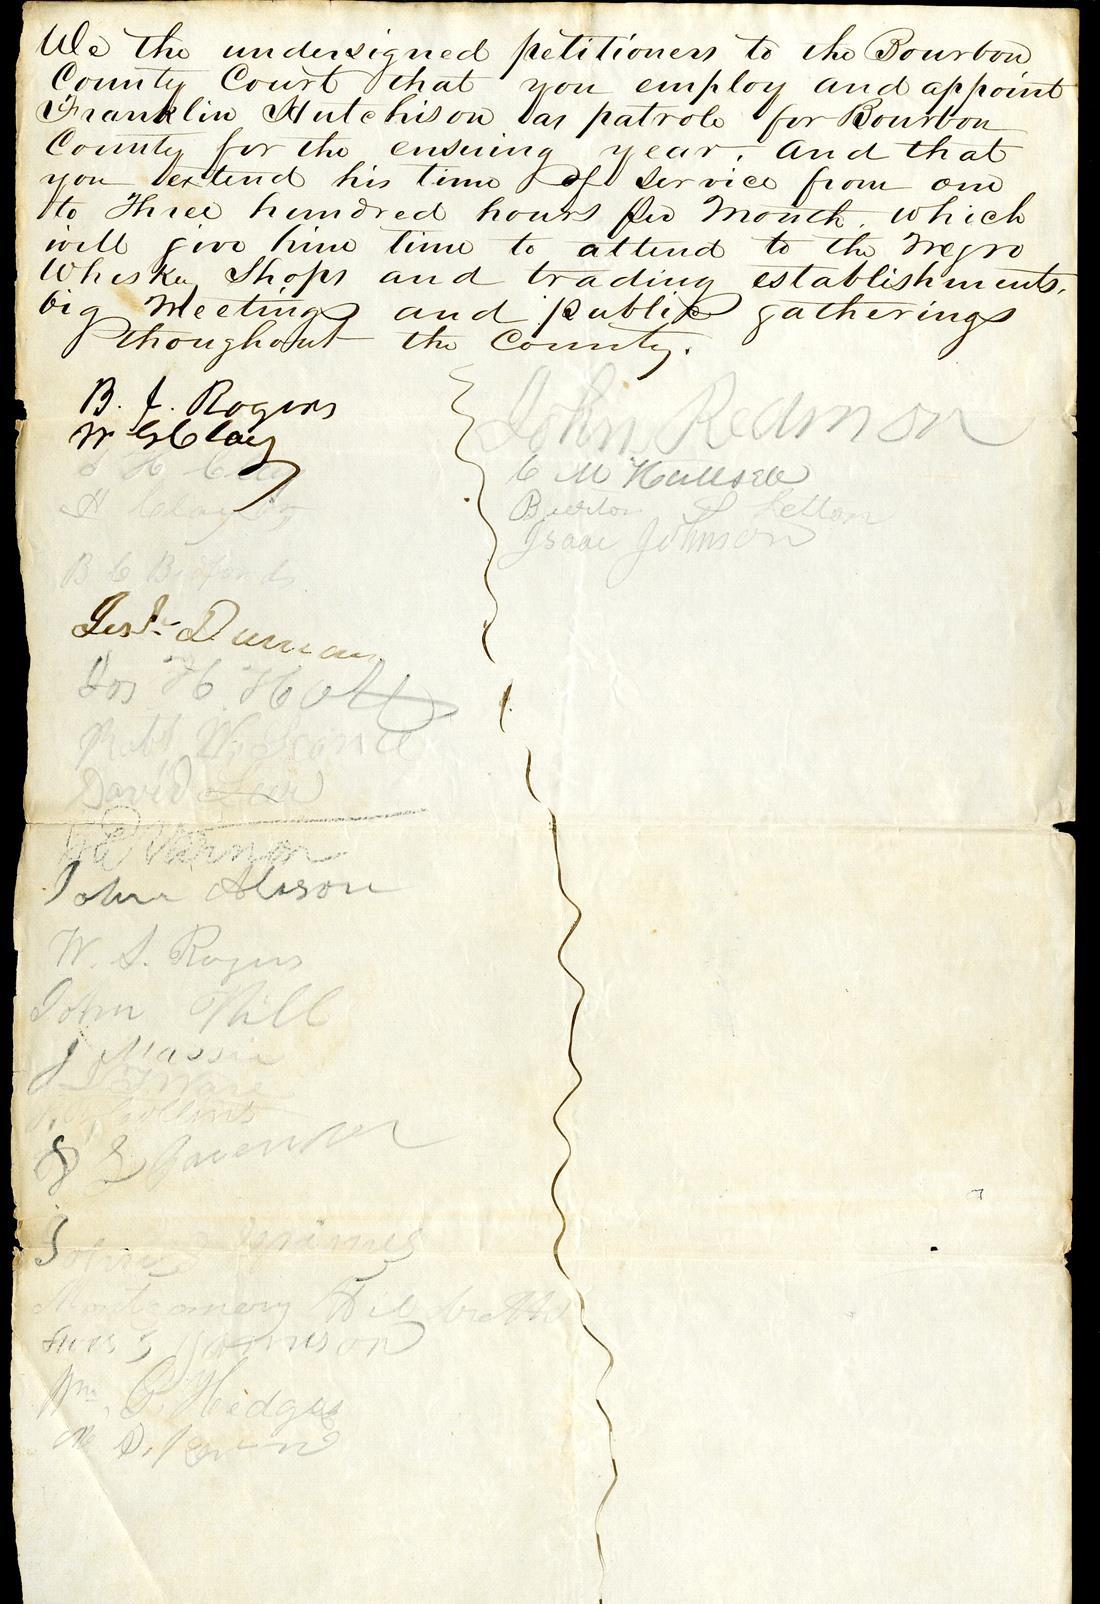 We the undersigned petitioners to the Bourbon
County Court that you employ and appoint
Franklin Hutchison as patrole for Bourbon
County for the ensuing year. And that
you extend his time of service from one
to Three hundred hours per Month. which
will give him time to attend to the Negro
Whisky Shops and trading establishments,
big Meetings and public gatherings
thoughout the County.
B. J. Rogers
W G Clay
H Clay
B C Bedford
Duncan
Jos H. Holt
Robt W.
David
Varnon
John Alison
W. S. Rogers
John Hill
J Massie
Ware
Collins
John Grimes
Montgomery Hildreth
Johnson
Wm. P. Hedges
John Redmon
C M
Burton Letton
Isaac Johnson